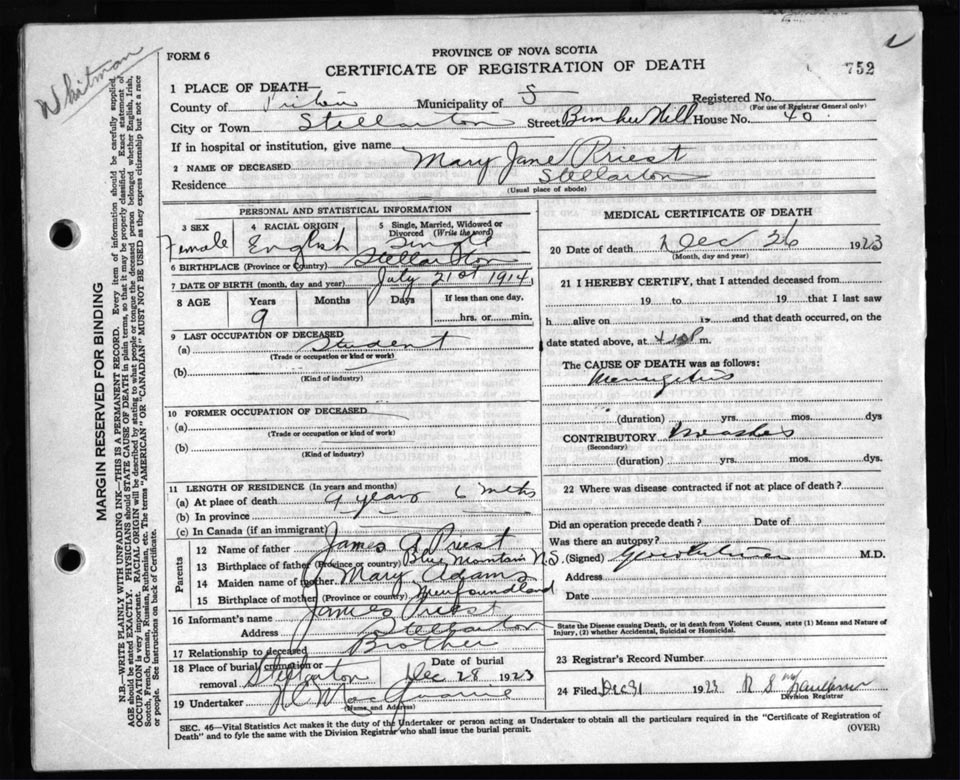 Whitman
FORM 6
PROVINCE OF NOVA SCOTIA
CERTIFICATE OF REGISTRATION OF DEATH
752
1 PLACE OF DEATH—
County of Pictou Municipality of S Registered No.
(For use of Registrar General only)
City or Town Stellarton Street Bunker Hill House No. 40
If in hospital or institution, give name
2 NAME OF DECEASED Mary Jane Priest
Residence Stellarton
(Usual place of abode)
PERSONAL AND STATISTICAL INFORMATION
3 SEX Female
4 RACIAL ORIGIN English
5 Single, Married, Widowed or Divorced (Write the word) Single
6 BIRTHPLACE (Province or Country) Stellarton
7 DATE OF BIRTH (month, day and year) July 21st 1914
8 AGE Years Months Days If less than one day,
9 hrs. or min.
9 LAST OCCUPATION OF DECEASED
(a) Student
(Trade or occupation or kind or work)
(b)
(Kind of industry)
10 FORMER OCCUPATION OF DECEASED
(a)
(Trade or occupation or kind of work)
(b)
(Kind of industry)
11 LENGTH OF RESIDENCE (In years and months)
(a) At place of death 9 years 6 mths
(b) In province
(c) In Canada (if an immigrant)
Parents
12 Name of father James A Priest
13 Birthplace of father (Province or country) Blue Mountain N.S.
14 Maiden name of mother Mary Adams
15 Birthplace of mother (Province or country) Newfoundland
16 Informant's name James Priest
Address Stellarton
17 Relationship to deceased Brother
18 Place of burial, cremation or removal Stellarton Date of burial Dec 28 1923
19 Undertaker
(Name and Address)
MEDICAL CERTIFICATE OF DEATH
20 Date of death Dec 26 1923
(Month, day and year)
21 I HEREBY CERTIFY, that I attended deceased from
19 to 19 that I last saw
h alive on 19 and that death occurred, on the
date stated above, at m.
The CAUSE OF DEATH was as follows:
Meningitis
(duration) yrs. mos. dys
CONTRIBUTORY Measles
(Secondary)
(duration) yrs. mos. dys.
22 Where was disease contracted if not at place of death?
Did an operation precede death? Date of
Was there an autopsy?
(Signed) M.D.
Address
Date
State the Disease causing Death, or in death from Violent Causes, state (1) Means and Nature of
Injury, (2) whether Accidental, Suicidal or Homicidal.
23 Registrar's Record Number
24 Filed Dec 31 1923
Division Registrar
SEC. 46—Vital Statistics Act makes it the duty of the Undertaker or person acting as Undertaker to obtain all the particulars required in the "Certificate of Registration of
Death" and to fyle the same with the Division Registrar who shall issue the burial permit.
(OVER)
MARGIN RESERVED FOR BINDING
N.B.—WRITE PLAINLY WITH UNFADING INK—THIS IS A PERMANENT RECORD. Every item of information should be carefully supplied.
AGE should be stated EXACTLY. PHYSICIANS should STATE CAUSE OF DEATH in plain terms, so that it may be properly classified. Exact statement of
OCCUPATION is very important. RACIAL ORIGIN will be described by stating to what people or tongue the deceased person belonged whether English, Irish,
Scotch, French, German, Russian, Ruthenian, etc. The terms "AMERICAN" OR "CANADIAN" MUST NOT BE USED as they express citizenship but not a race
or people. See instructions on back of Certificate.